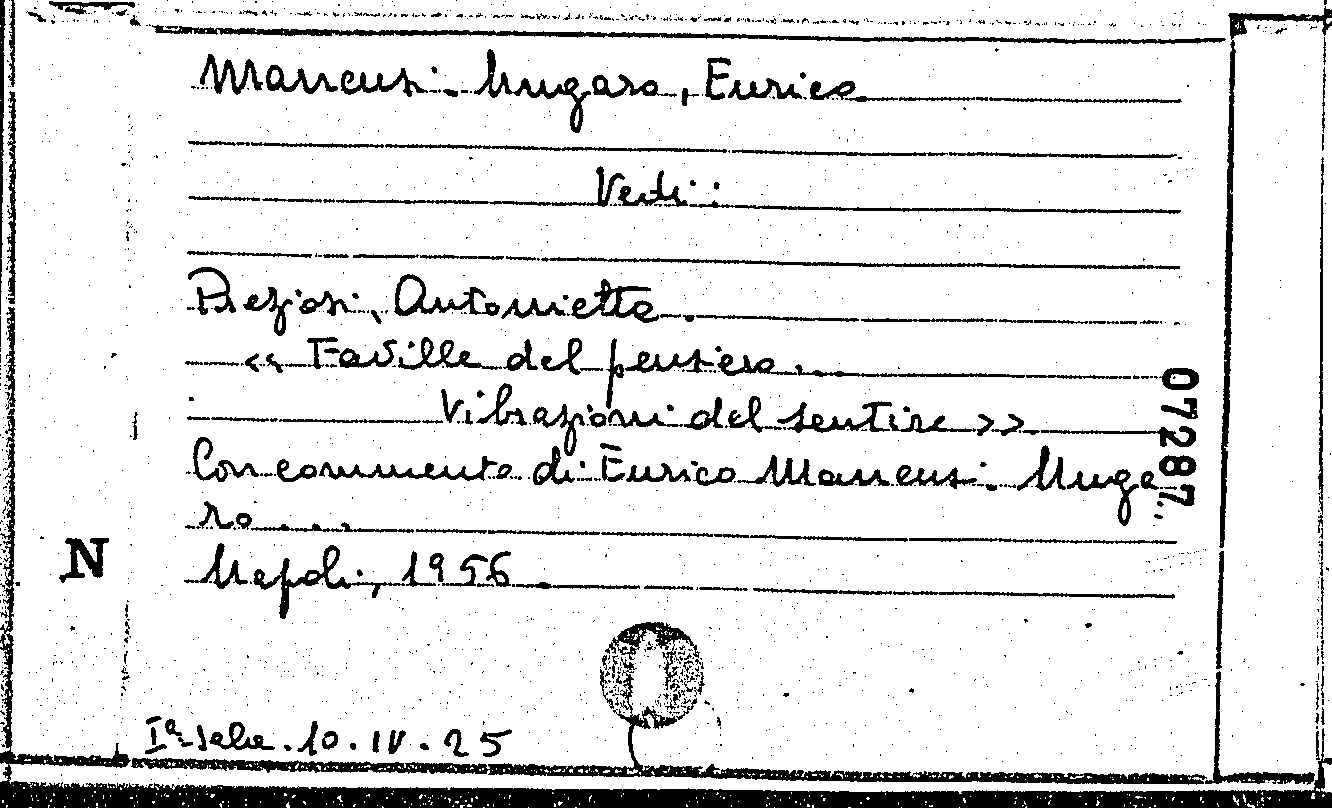 Mancusi-Nugaro, Enrico
Vedi:
Preziosi, Antonietta.
<< Faville del pensiero...
Vibrazioni del sentire >>
Con commento di Enrico Mancusi-Nuga
ro...
Napoli, 1956.
N
07287
Iª. Sala. 10. IV. 25